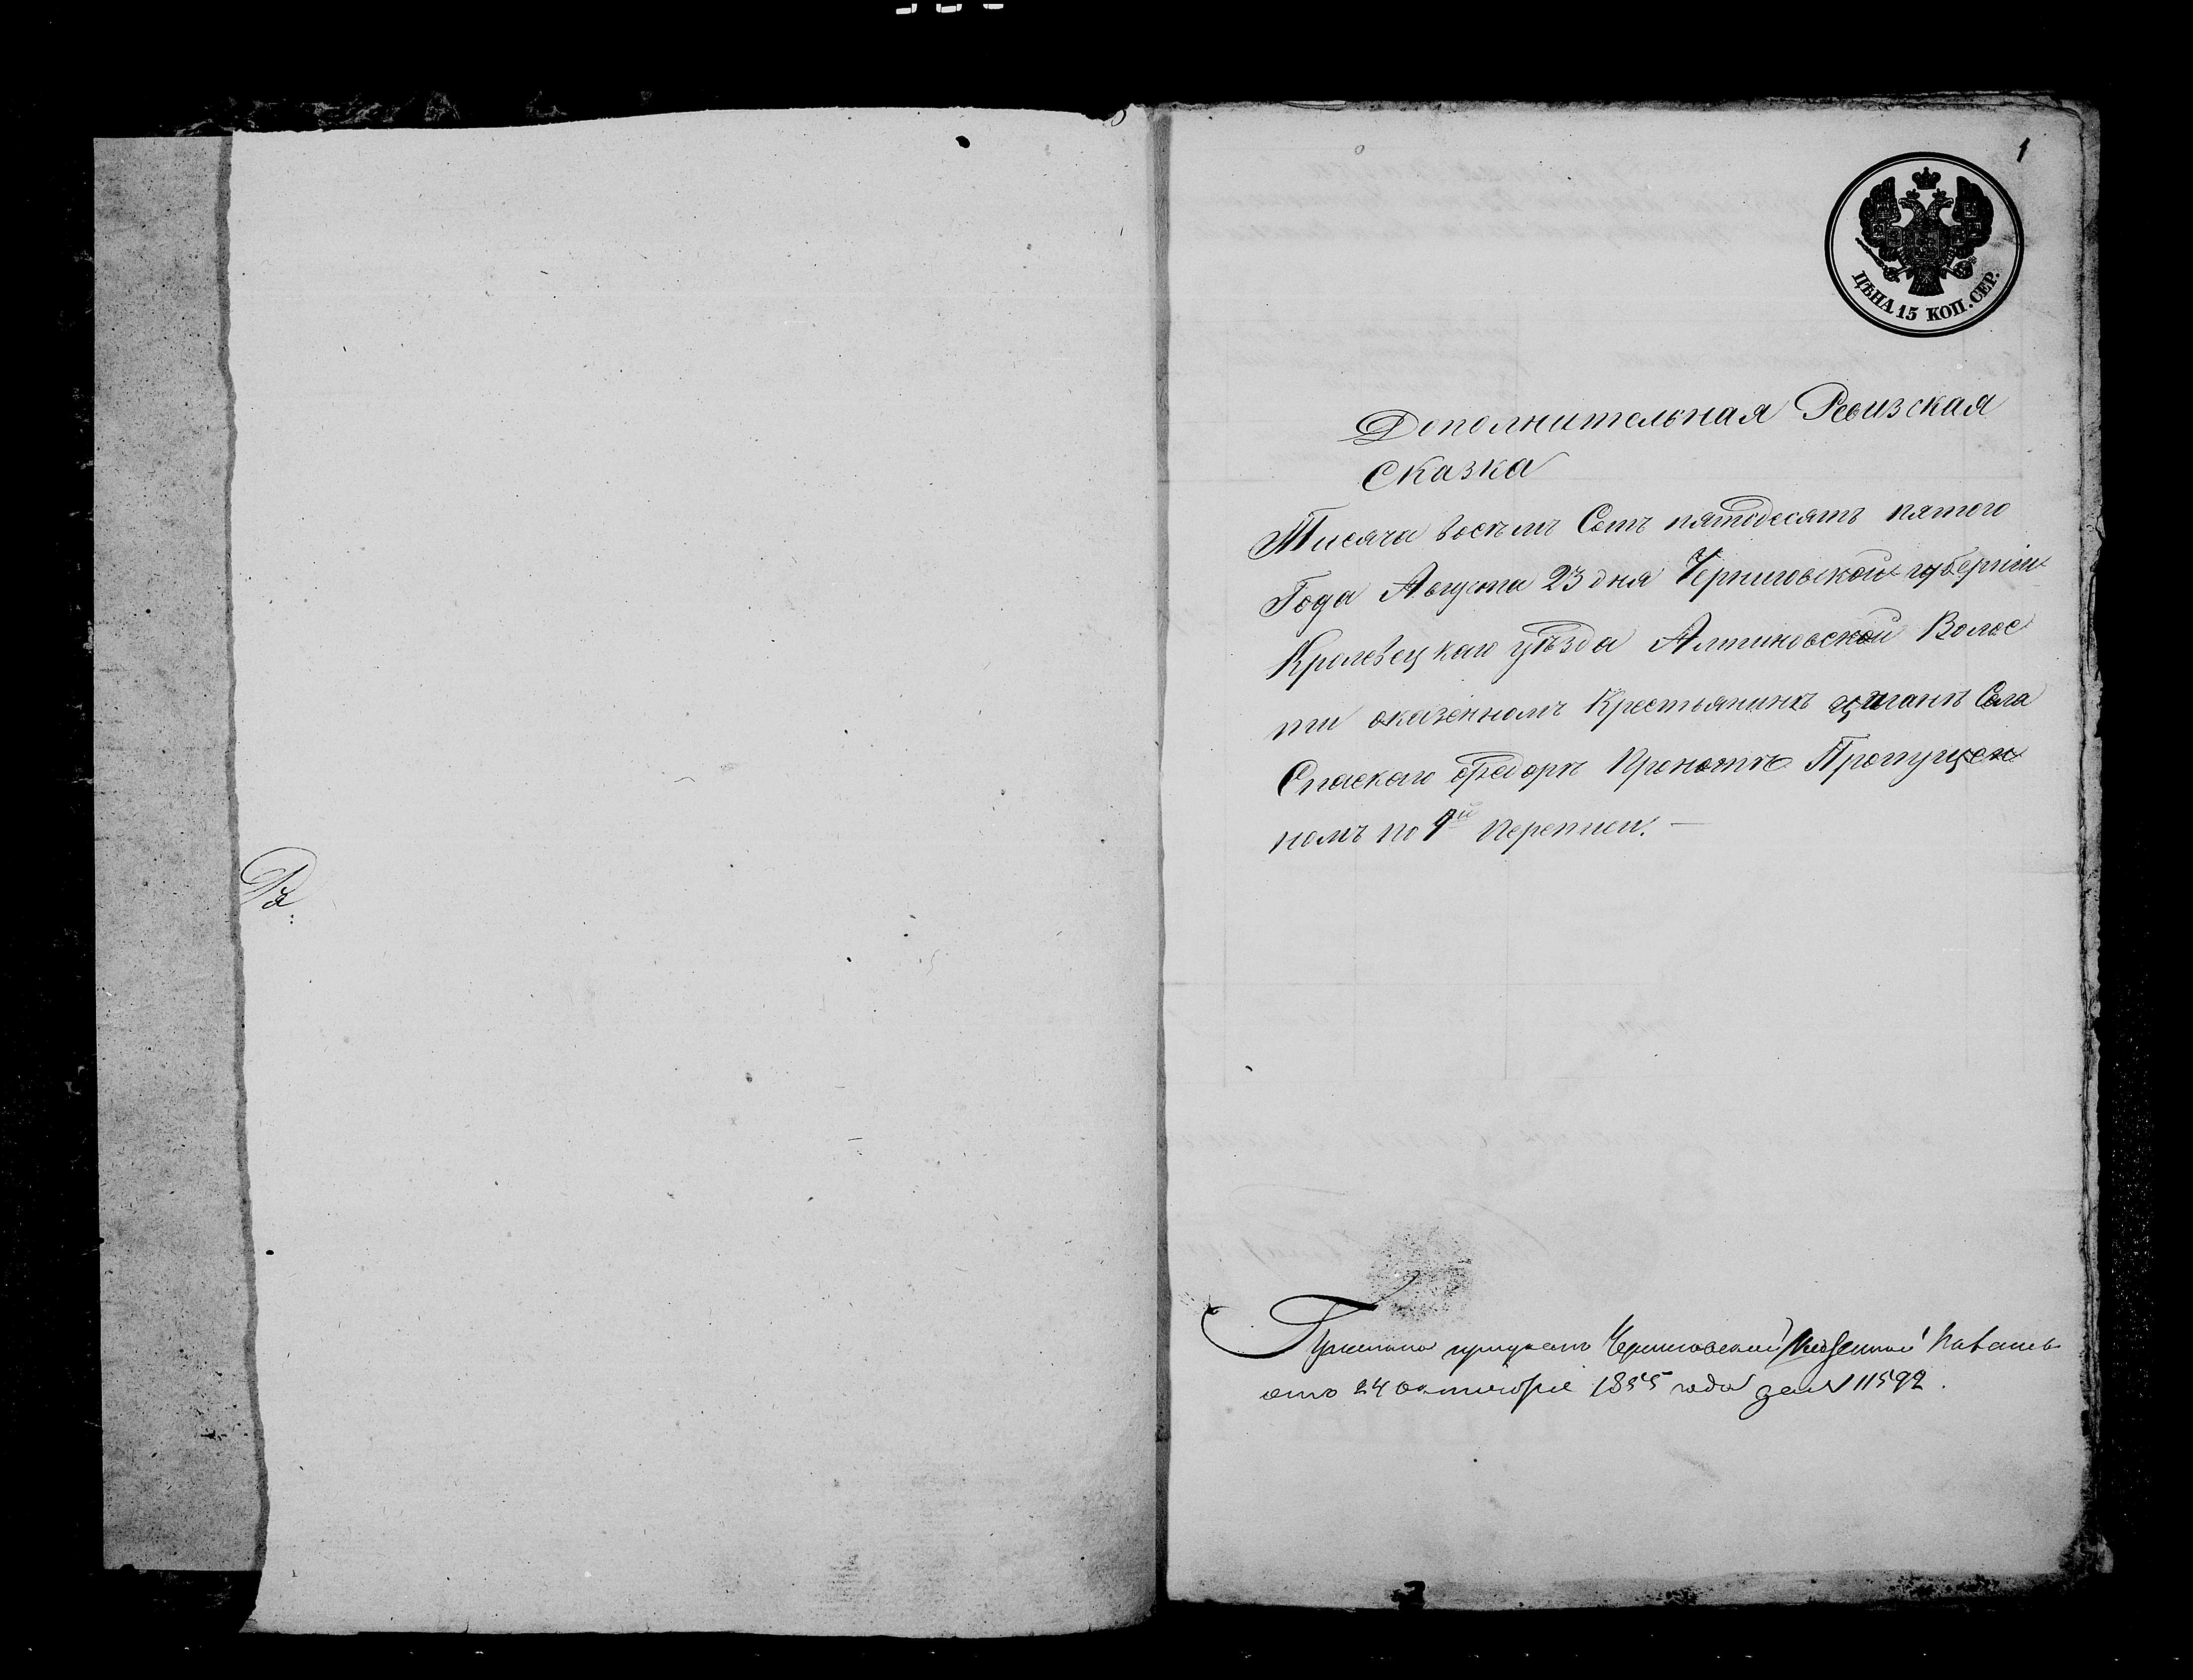 1
ЦѢНА 15 КОП. СЕР.
Дополнительная Ревизская
Сказка
Тисяча восѣмъ Сотъ пятодесятъ пятого
Года Августа 23 дня Черниговской губерніи
Кролевецкаго уѣзда Алтиновской Волос
ти оказенномъ Крестьянинѣ цыганѣ Села
Спаскаго Федорѣ Пропущен
номъ по 9й переписи. —
Принята при указѣ Черниговской Казенной Палаты
отъ 24 октября 1855 года за № 11592.